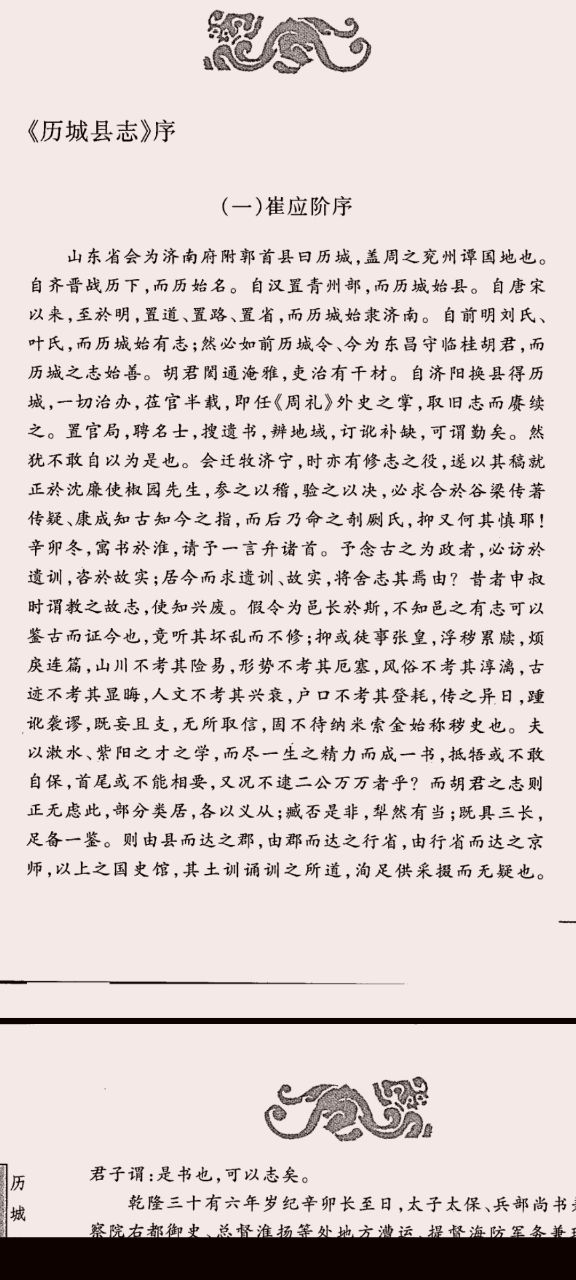 《历城县志》序
(一)崔应阶序
山东省会为济南府附郭首县曰历城,盖周之兖州谭国地也。
自齐晋战历下,而历始名。自汉置青州部,而历城始县。自唐宋
以来,至於明,置道、置路、置省,而历城始隶济南。自前明刘氏、
叶氏,而历城始有志;然必如前历城令、今为东昌守临桂胡君,而
历城之志始善。胡君閎通淹雅,吏治有干材。自济阳换县得历
城,一切治办,莅官半载,即任《周礼》外史之掌,取旧志而赓续
之。置官局,聘名士,搜遗书,辨地域,订讹补缺,可谓勤矣。然
犹不敢自以为是也。会迁牧济宁,时亦有修志之役,遂以其稿就
正於沈廉使椒园先生,参之以稽,验之以决,必求合於谷梁传著
传疑、康成知古知今之指,而后乃命之剞劂氏,抑又何其慎耶!
辛卯冬,寓书於淮,请予一言弁诸首。予念古之为政者,必访於
遗训,咨於故实;居今而求遗训、故实,将舍志其焉由?昔者申叔
时谓教之故志,使知兴废。假令为邑长於斯,不知邑之有志可以
鉴古而证今也,竟听其坏乱而不修;抑或徒事张皇,浮秽累牍,烦
戾连篇,山川不考其险易,形势不考其厄塞,风俗不考其淳漓,古
迹不考其显晦,人文不考其兴衰,户口不考其登耗,传之异日,踵
讹袭谬,既妄且支,无所取信,固不待纳米索金始称秽史也。夫
以漱水、紫阳之才之学,而尽一生之精力而成一书,抵牾或不敢
自保,首尾或不能相要,又况不逮二公万万者乎?而胡君之志则
正无虑此,部分类居,各以义从;臧否是非,犁然有当;既具三长,
足备一鉴。则由县而达之郡,由郡而达之行省,由行省而达之京
师,以上之国史馆,其土训诵训之所道,洵足供采掇而无疑也。
君子谓:是书也,可以志矣。
乾隆三十有六年岁纪辛卯长至日,太子太保、兵部尚书
察院右都御史、总督淮扬等处地方漕运、提督海防军务兼
历
城